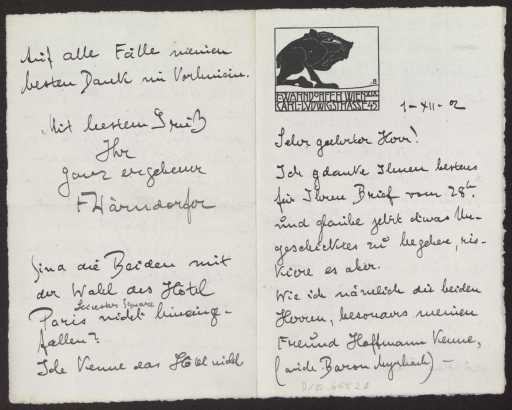 F. WÄRNDORFER WIEN XVIII.
CARL-LUDWIGSTRASSE 45
1-XII-02
Sehr geehrter Herr!
Ich danke Ihnen bestens
für Ihren Brief vom 28ten
und glaube jetzt etwas Un-
geschicktes zu begehen, ris-
kiere es aber.
Wie ich nämlich die beiden
Herren, besonders meinen
Freund Hoffmann kenne,
(wide Baron Myrbach) –
Auf alle Fälle meinen
besten Dank im Vorhinein.
Mit bestem Gruß
Ihr
ganz ergebener
FWärndorfer
Sind die Beiden mit
der Wahl des Hôtel
Leicester Square
Paris nicht hineinge-
fallen?
Ich kenne das Hôtel nicht